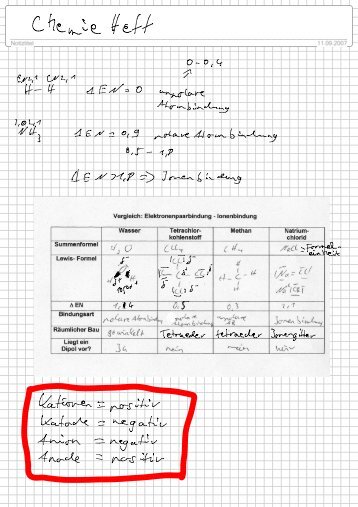 Chemie Heft
Notiztitel
11.09.2007
0-0,4
EN2,1 EN2,1
H-H ΔEN=0 unpolare
Atombindung
NH3 ΔEN=0,9 polare Atombindung
0,5 - 1,8
ΔEN>1,8 => Ionenbindung
Vergleich: Elektronenpaarbindung - Ionenbindung
Wasser Tetrachlor-kohlenstoff Methan Natrium-chlorid
Summenformel H2O CCl4 CH4 NaCl =Formel-einheit
Lewis- Formel
Δ EN 1,4 0,5 0,3
Bindungsart polare Atombindung polare Atombindung unpolare AB Ionenbindung
Räumlicher Bau gewinkelt Tetraeder tetraeder Ionengitter
Liegt ein Dipol vor? Ja nein nein nein
Kationen = positiv
Katode = negativ
Anion = negativ
Anode = positiv